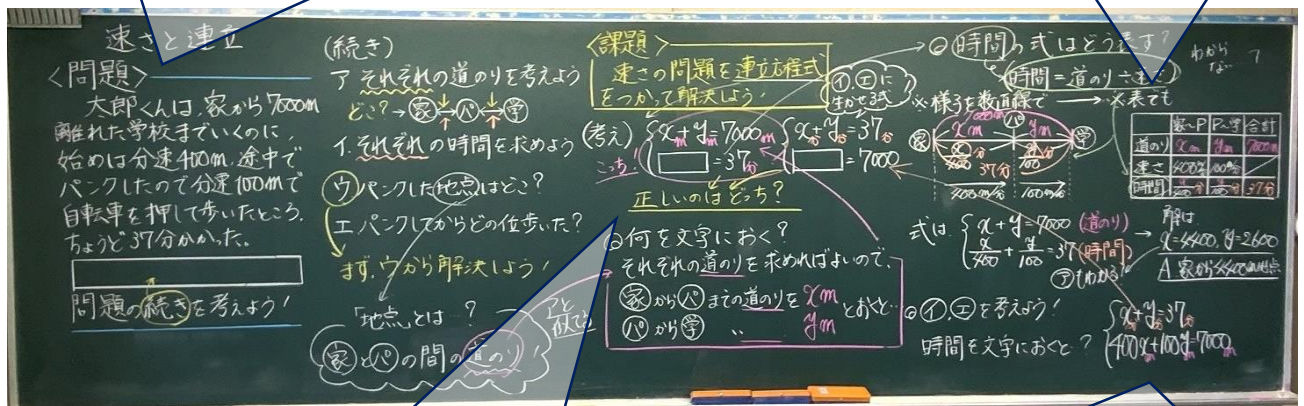 速さと連立
〈問題〉
太郎くんは、家から7000m
離れた学校までいくのに、
始めは分速400m、途中で
パンクしたので分速100mで
自転車を押して歩いたところ、
ちょうど37分かかった。
問題の続きを考えよう!
(続き)
ア それぞれの道のりを考えよう
どこ?→家→パ→学
イ.それぞれの時間を求めよう
ウ パンクした地点はどこ?
エ パンクしてからどの位歩いた?
まず、ウから解決しよう!
「地点」とは…?
家とパの間の道のり
アと
似てる
〈課題〉
速さの問題を連立方程式
をつかって解決しよう!
イ、エに
(考え)
x+y=7000m
=37分
こっち!
x+y=37分
=7000
正しいのはどっち?
何を文字におく?
それぞれの道のりを求めればよいので、
家からパまでの道のりをxm
パから学 〃 ym
とおくと…
時間の式はどう表す?
時間=道のり÷速さ
わから
※様子を数直線で
※表でも
家 パ 学
7000m
xm ym
x/400分 y/100分
37分
400m/分 100m/分
家〜P P〜学 合計
道のり xm ym 7000m
速さ 400m/分 100m/分
時間 x/400分 y/100分 37分
式は
x+y=7000 (道のり)
x/400+y/100=37 (時間)
解は
x=4400, y=2600
A 家から4400m地点
アもわかる?
イ、エを考えよう!
時間を文字におくと?
x+y=37
400x+100y=7000